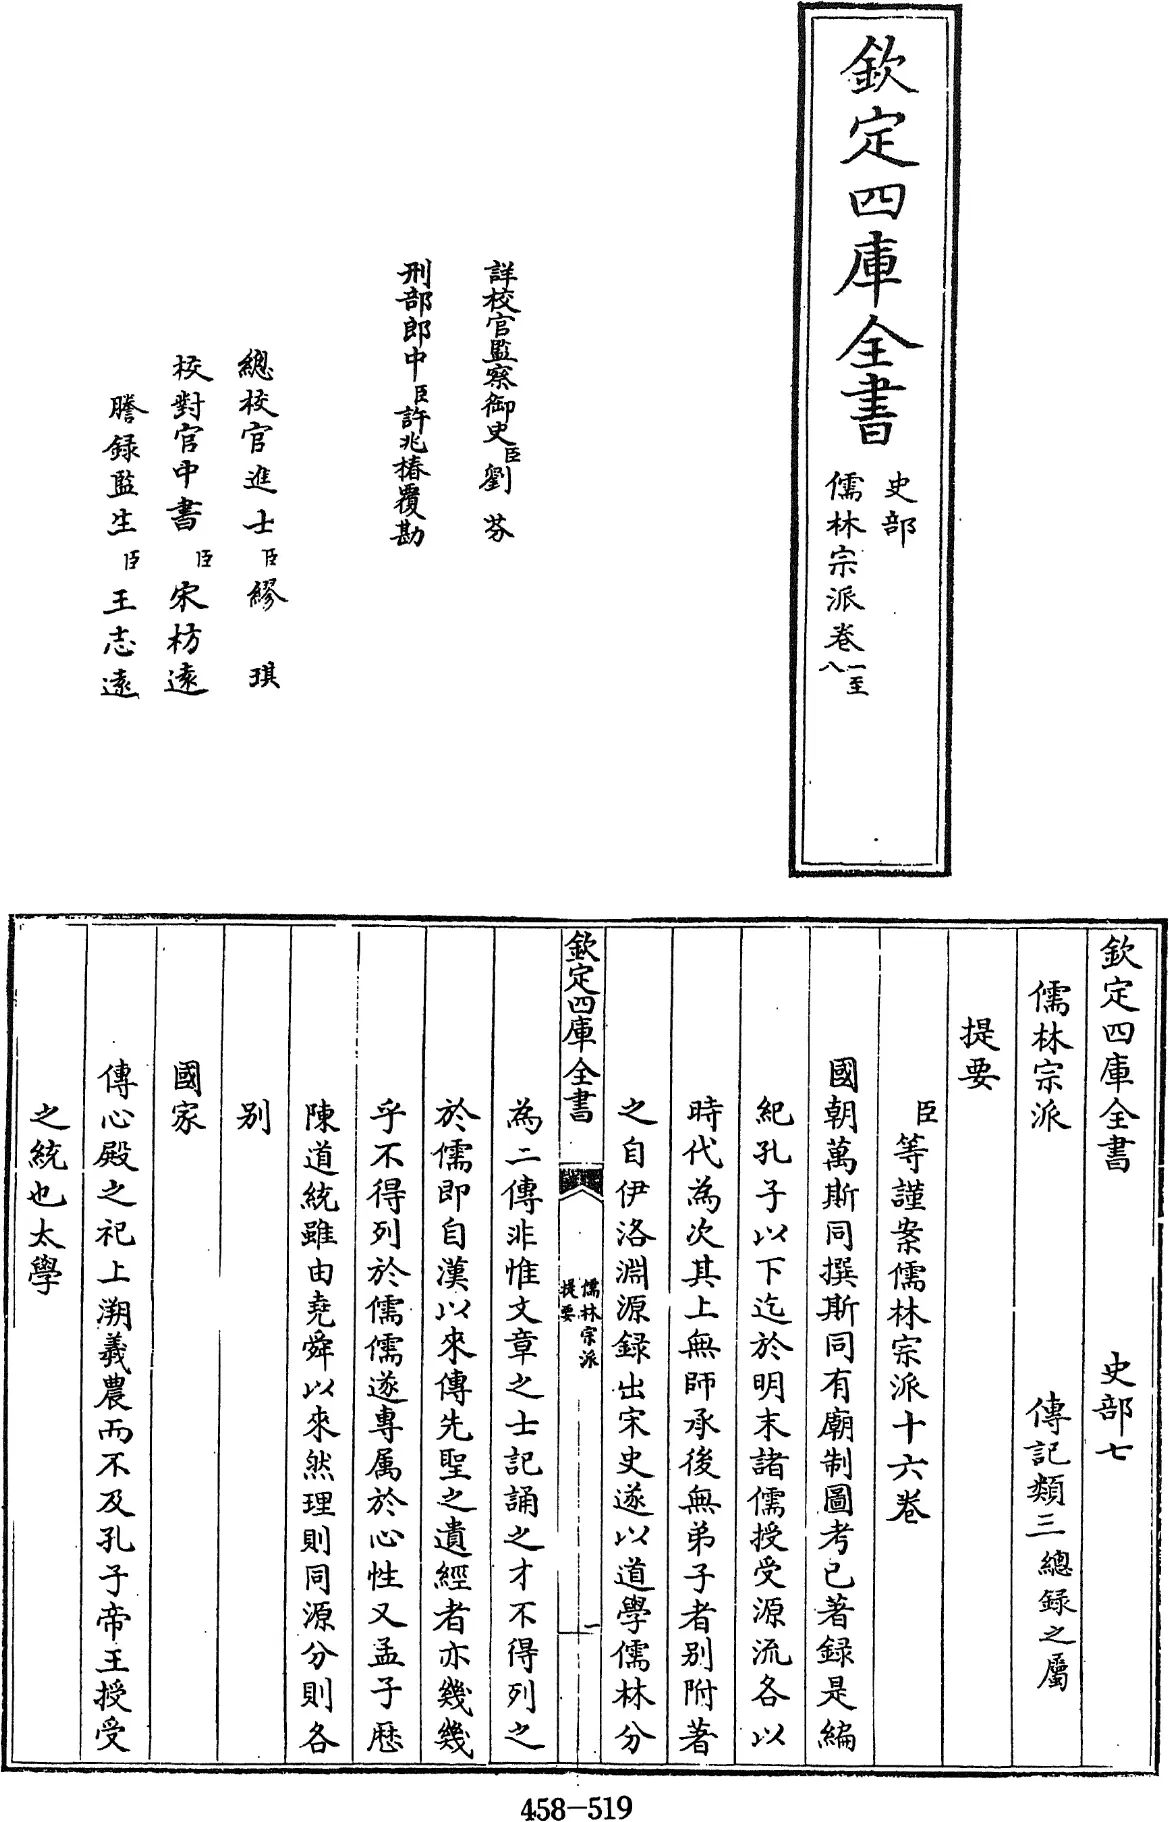 欽定四庫全書
史部
儒林宗派卷一至八
詳校官監察御史臣劉芬
刑部郎中臣許兆椿覆勘
總校官進士臣繆琪
校對官中書臣宋枋遠
謄録監生臣王志遠
欽定四庫全書 史部七
儒林宗派 傳記類三總録之屬
提要
臣等謹案儒林宗派十六卷
國朝萬斯同撰斯同有廟制圖考已著録是編
紀孔子以下迄於明末諸儒授受源流各以
時代為次其上無師承後無弟子者别附著
之自伊洛淵源録出宋史遂以道學儒林分
欽定四庫全書
儒林宗派
提要
一
為二傳非惟文章之士記誦之才不得列之
於儒即自漢以來傳先聖之遺經者亦幾幾
乎不得列於儒儒遂專属於心性又孟子歴
陳道統雖由堯舜以來然理則同源分則各
别
國家
傳心殿之祀上溯羲農而不及孔子帝王授受
之統也太學
458-519